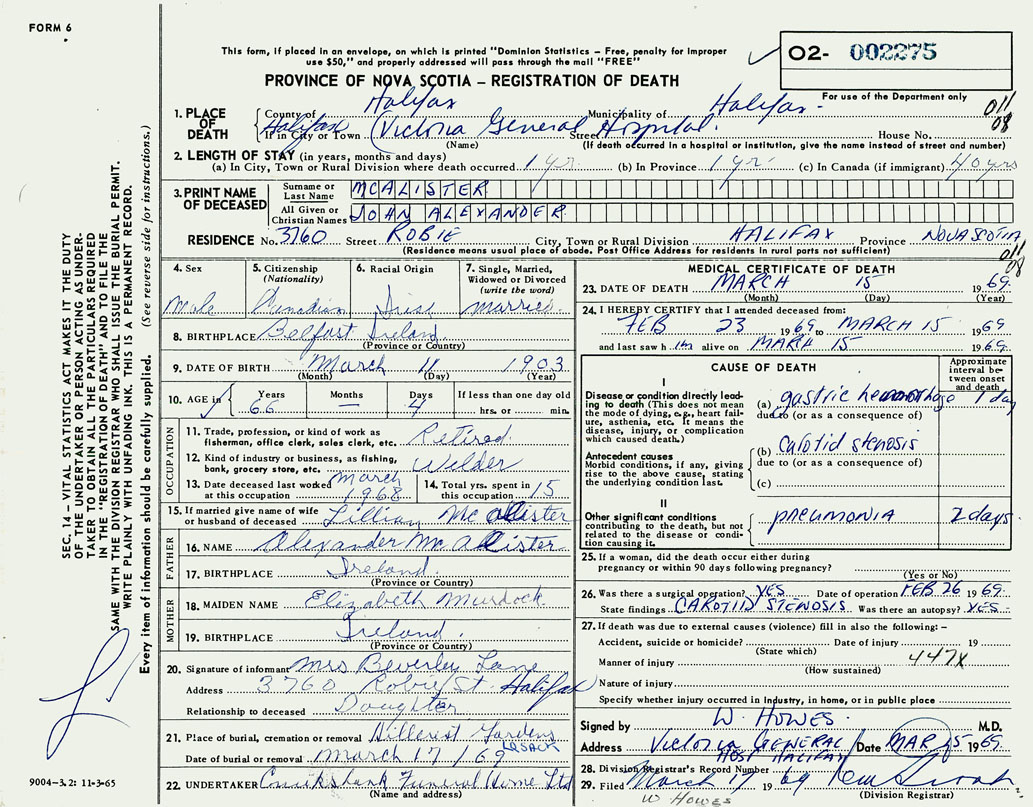 FORM 6
This form, if placed in an envelope, on which is printed "Dominion Statistics – Free, penalty for improper
use $50," and properly addressed will pass through the mail "FREE"
O2- 002275
PROVINCE OF NOVA SCOTIA – REGISTRATION OF DEATH
For use of the Department only
011
08
1. PLACE OF DEATH
County of Halifax Municipality of Halifax
Halifax (Victoria General Hospital.
If in City or Town Street House No.
(Name) (If death occurred in a hospital or institution, give the name instead of street and number)
2. LENGTH OF STAY (in years, months and days)
(a) In City, Town or Rural Division where death occurred 1 yr (b) In Province 1 yr. (c) In Canada (if immigrant) 40 yrs
3. PRINT NAME OF DECEASED
Surname or Last Name MCALISTER
All Given or Christian Names JOHN ALEXANDER
RESIDENCE No. 3760 Street ROBIE City, Town or Rural Division HALIFAX Province NOVA SCOTIA
(Residence means usual place of abode. Post Office Address for residents in rural ports not sufficient)
011
08
4. Sex Male
5. Citizenship (Nationality) Canadian
6. Racial Origin Irish
7. Single, Married, Widowed or Divorced (write the word) married
8. BIRTHPLACE Belfast Ireland
(Province or Country)
9. DATE OF BIRTH March 11 1903
(Month) (Day) (Year)
10. AGE in Years 66 Months — Days 4 If less than one day old hrs. or min.
OCCUPATION
11. Trade, profession or kind of work as fisherman, office clerk, sales clerk, etc. Retired
12. Kind of industry or business, as fishing, bank, grocery store, etc. Welder
13. Date deceased last worked at this occupation March 1968
14. Total yrs. spent in this occupation 15
15. If married give name of wife or husband of deceased Lillian McAllister
FATHER
16. NAME Alexander McAllister
17. BIRTHPLACE Ireland
(Province or Country)
MOTHER
18. MAIDEN NAME Elizabeth Murdock
19. BIRTHPLACE Ireland.
(Province or Country)
20. Signature of informant Mrs Beverley Lane
Address 3760 Robie St. Halifax
Relationship to deceased Daughter
21. Place of burial, cremation or removal Hillcrest Gardens
Date of burial or removal March 17/69
22. UNDERTAKER Cruikshank Funeral Home Ltd
(Name and address)
MEDICAL CERTIFICATE OF DEATH
23. DATE OF DEATH MARCH 15 1969.
(Month) (Day) (Year)
24. I HEREBY CERTIFY that I attended deceased from:
FEB 23 1969 to MARCH 15 1969
and last saw h im alive on MARCH 15 1969.
CAUSE OF DEATH
Approximate interval between onset and death
I
Disease or condition directly leading to death (This does not mean the mode of dying, e.g., heart failure, asthenia, etc. It means the disease, injury, or complication which caused death.)
(a) gastric hemorrhage 1 day
due to (or as a consequence of)
Antecedent causes
Morbid conditions, if any, giving rise to the above cause, stating the underlying condition last.
(b) carotid stenosis
due to (or as a consequence of)
(c)
II
Other significant conditions contributing to the death, but not related to the disease or condition causing it.
pneumonia 2 days
25. If a woman, did the death occur either during pregnancy or within 90 days following pregnancy?
(Yes or No)
26. Was there a surgical operation? YES Date of operation FEB 26 1969
State findings CAROTID STENOSIS Was there an autopsy? YES
27. If death was due to external causes (violence) fill in also the following: –
Accident, suicide or homicide? Date of injury 19
(State which)
Manner of injury 447X
(How sustained)
Nature of injury
Specify whether injury occurred in Industry, in home, or in public place
Signed by W. HOWES. M.D.
Address Victoria GENERAL HOSP HALIFAX Date MAR 15 1969
28. Division Registrar's Record Number
29. Filed March 17 1969
(Division Registrar)
W HOWES
SEC. 14 – VITAL STATISTICS ACT MAKES IT THE DUTY
OF THE UNDERTAKER OR PERSON ACTING AS UNDER-
TAKER TO OBTAIN ALL THE PARTICULARS REQUIRED
IN THE "REGISTRATION OF DEATH" AND TO FILE THE
SAME WITH THE DIVISION REGISTRAR WHO SHALL ISSUE THE BURIAL PERMIT.
WRITE PLAINLY WITH UNFADING INK. THIS IS A PERMANENT RECORD.
Every item of information should be carefully supplied. (See reverse side for instructions.)
9004–3.2: 11-3-65